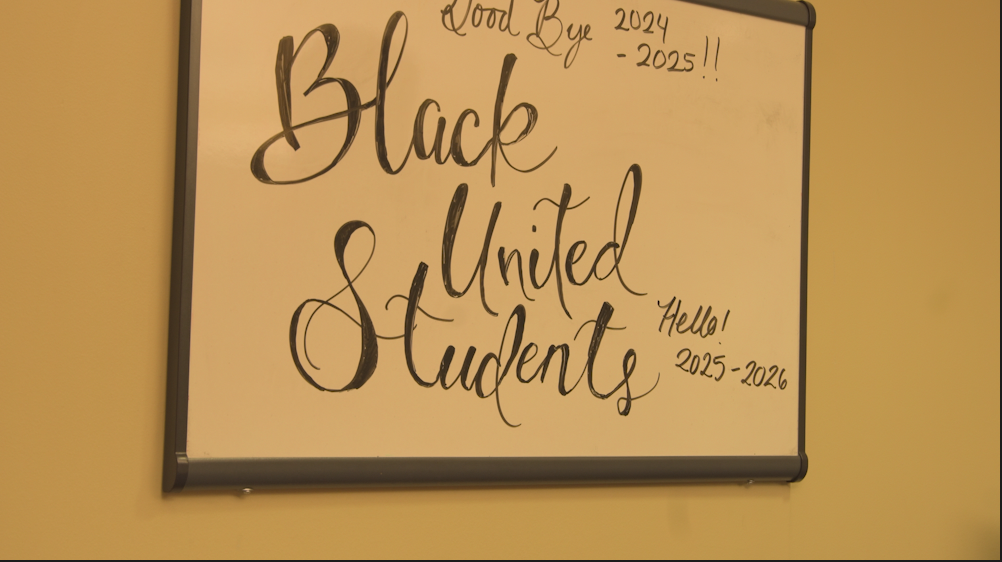 Good Bye 2024
- 2025!!
Black
United
Students
Hello!
2025-2026